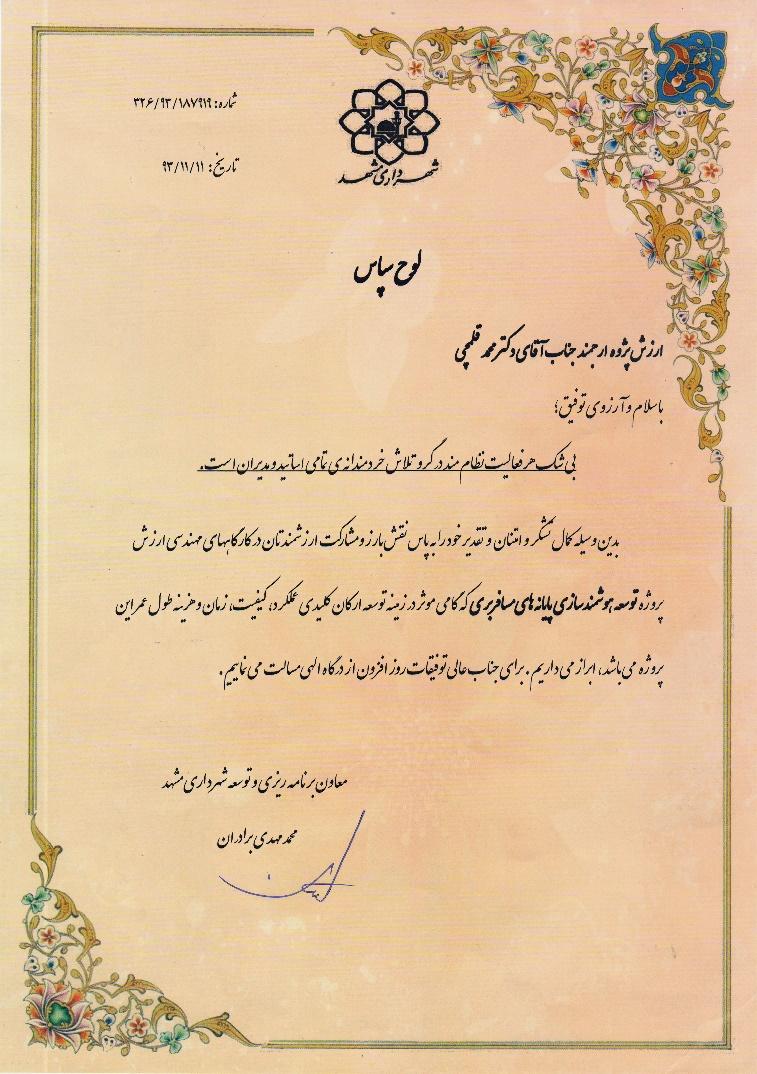 شماره: ۳۲۶/۹۳/۱۸۷۹۱۹
شهرداری مشهد
تاریخ: ۹۳/۱۱/۱۱
لوح سپاس
ارزش پژوه ارجمند جناب آقای دکتر محمد قلمچی
باسلام و آرزوی توفیق؛
بی شک هر فعالیت نظام مند در گرو تلاش خردمندانه ی تمامی اساتید و مدیران است.
بدین وسیله کمال تشکر و امتنان و تقدیر خود را به پاس نقش بارز و مشارکت ارزشمندتان در کارگاههای مهندسی ارزش
پروژه توسعه هوشمندسازی پایانه های مسافربری که گامی موثر در زمینه توسعه ارکان کلیدی عملکرد، کیفیت، زمان و هزینه طول عمر این
پروژه می باشد، ابراز می داریم. برای جناب عالی توفیقات روز افزون از درگاه الهی مسالت می نماییم.
معاون برنامه ریزی و توسعه شهرداری مشهد
محمد مهدی برادران